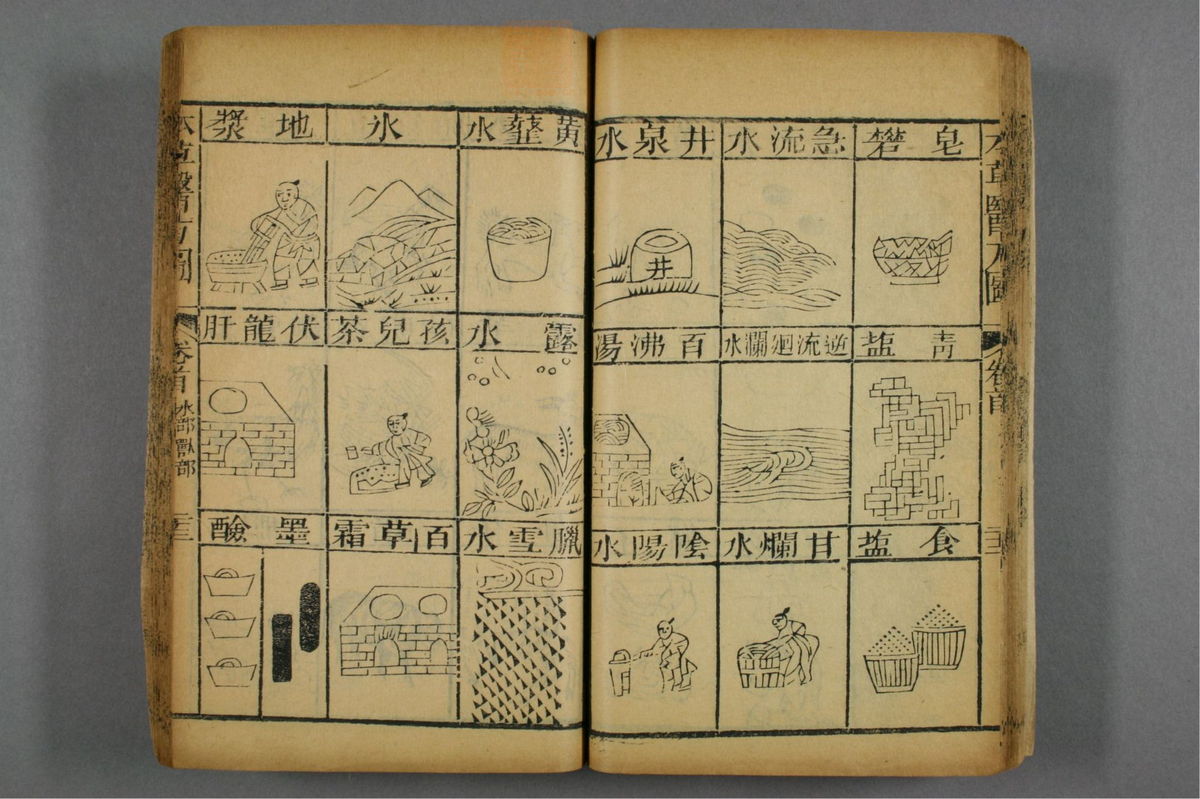 本草醫方圖
卷首
皂礬
急流水
井泉水
井
青塩
逆流廻瀾水
百沸湯
食塩
甘爛水
陰陽水
黃虀水
氷
地漿
露水
孩兒茶
伏龍肝
臘雪水
百草霜
墨鹼
本草醫方圖
卷首
水部
獸部